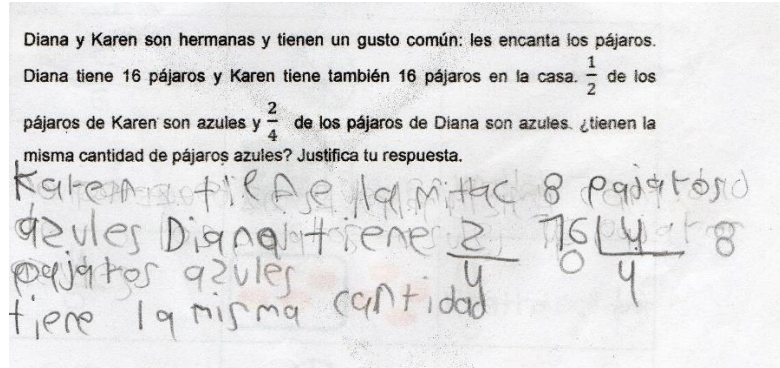 Diana y Karen son hermanas y tienen un gusto común: les encanta los pájaros.
Diana tiene 16 pájaros y Karen tiene también 16 pájaros en la casa. 1/2 de los
pájaros de Karen son azules y 2/4 de los pájaros de Diana son azules. ¿tienen la
misma cantidad de pájaros azules? Justifica tu respuesta.
Karen tiene la mitac 8 pajaros
azules Diana tiene 2/4 16 4 8
0 4
pajaros azules
tiene la misma cantidad